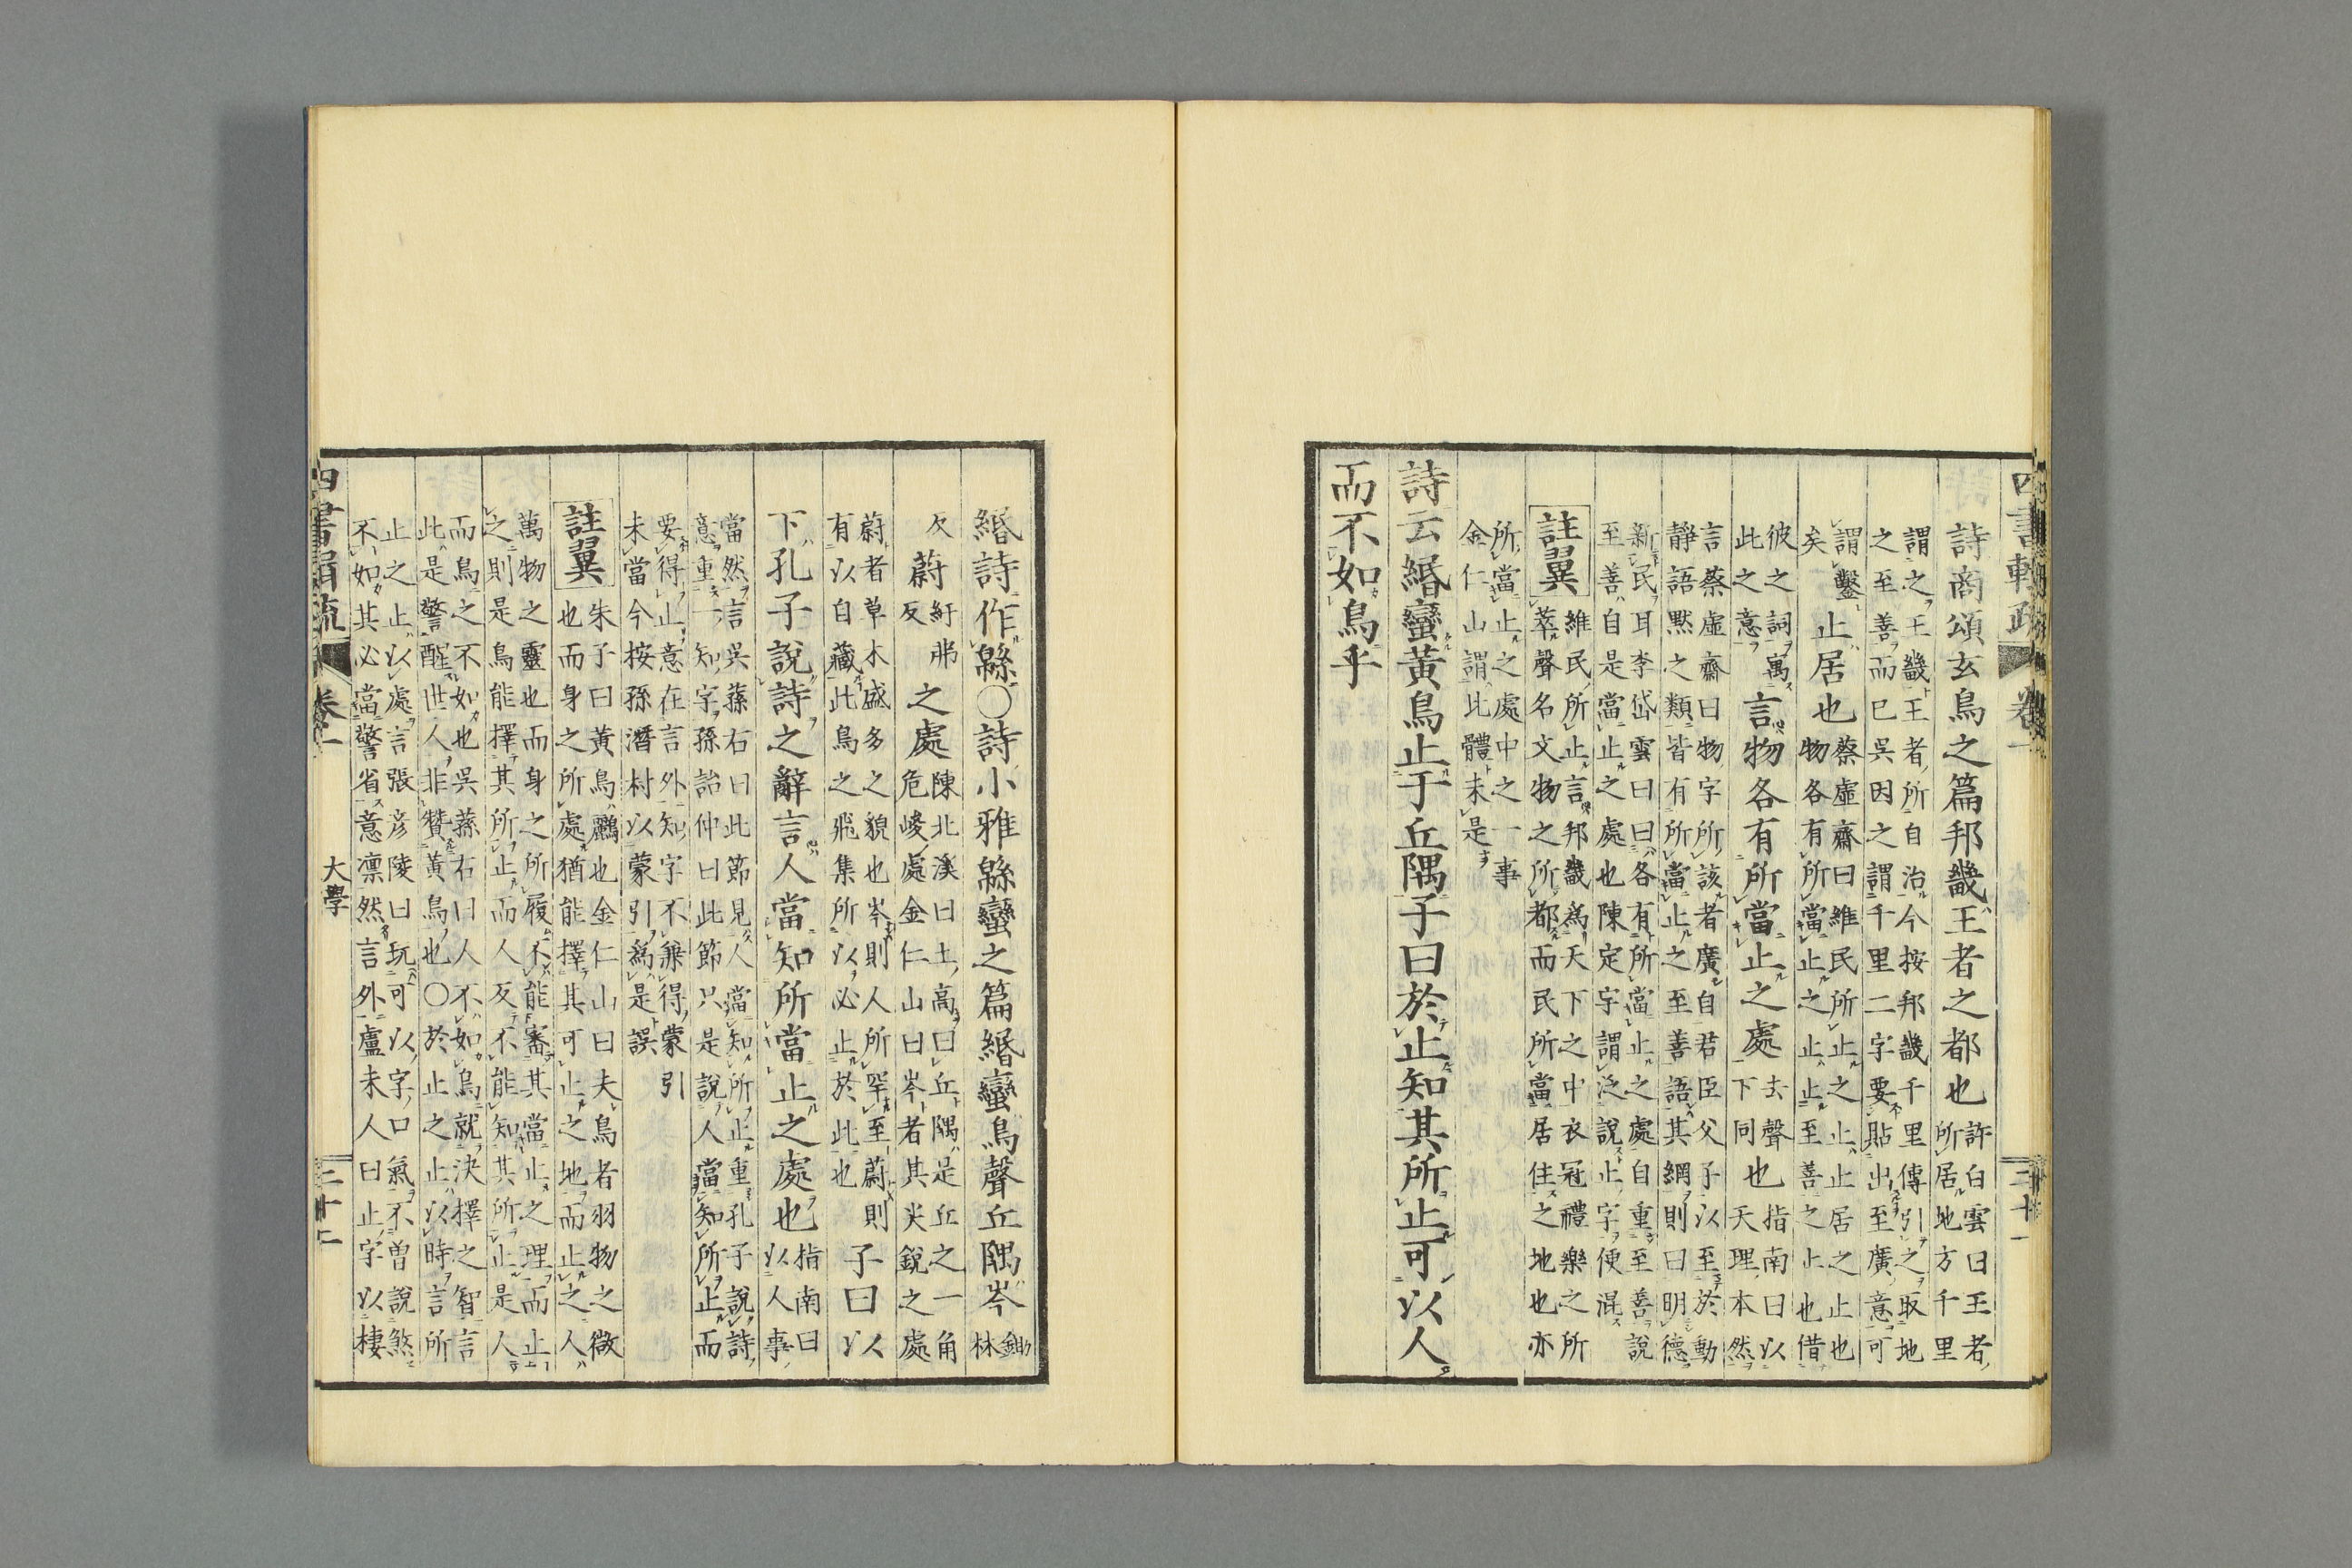 詩商頌玄鳥之篇邦畿王者之都也許白雲曰王者所居地方千里
謂之王畿王者所自治今按邦畿千里傳引之取地
之至善而已呉因之謂千里二字要貼出至廣意可
謂鑿矣止居也蔡虛齋曰維民所止之止止居之止也
物各有所當止之止止至善之止也借
彼之詞寓此之意言物各有所當止之處去聲下同也指南曰以天理本然
言蔡虛齋曰物字所該者廣自君臣父子以至於動
靜語默之類皆有所當止之至善語其綱則曰明德
新民耳李岱雲曰曰各有所當止之處自重至善說
至善自是當止之處也陳定宇謂泛說止字便混
註翼維民所止言邦畿爲天下之中衣冠禮樂之所
萃聲名文物之所都而民所當居住之地也亦
所當止之處中之一事
金仁山謂此體未是
詩云緡蠻黃鳥止于丘隅子曰於止知其所止可以人
而不如鳥乎
緡詩作緜○詩小雅緜蠻之篇緡蠻鳥聲丘隅岑鋤林
反蔚紆弗反之處陳北溪曰土高曰丘隅是丘之一角
危峻處金仁山曰岑者其尖銳之處
蔚者草木盛多之貌也岑則人所罕至蔚則
有以自藏此鳥之飛集所以必止於此也子曰以
下孔子說詩之辭言人當知所當止之處也指南曰以人事
當然言呉蓀右曰此節見人當知所止重孔子說詩
意重一知字孫詒仲曰此節只是說人當知所止而
要得止意在言外知字不兼得蒙引
未當今按孫潛村以蒙引爲是誤
註翼朱子曰黃鳥鸝也金仁山曰夫鳥者羽物之微
也而身之所處猶能擇其可止之地而止之人
萬物之靈也而身之所履不能審其當止之理而止
之則是鳥能擇其所止而人反不能知其所止是人
而鳥之不如也呉蓀右曰人不如鳥就決擇之智言
此是警醒世人非贊黃鳥也○於止之止以時言所
止之止以處言張彦陵曰玩可以字口氣不曽說煞
不如其必當警省意凛然言外盧未人曰止字以棲
大學